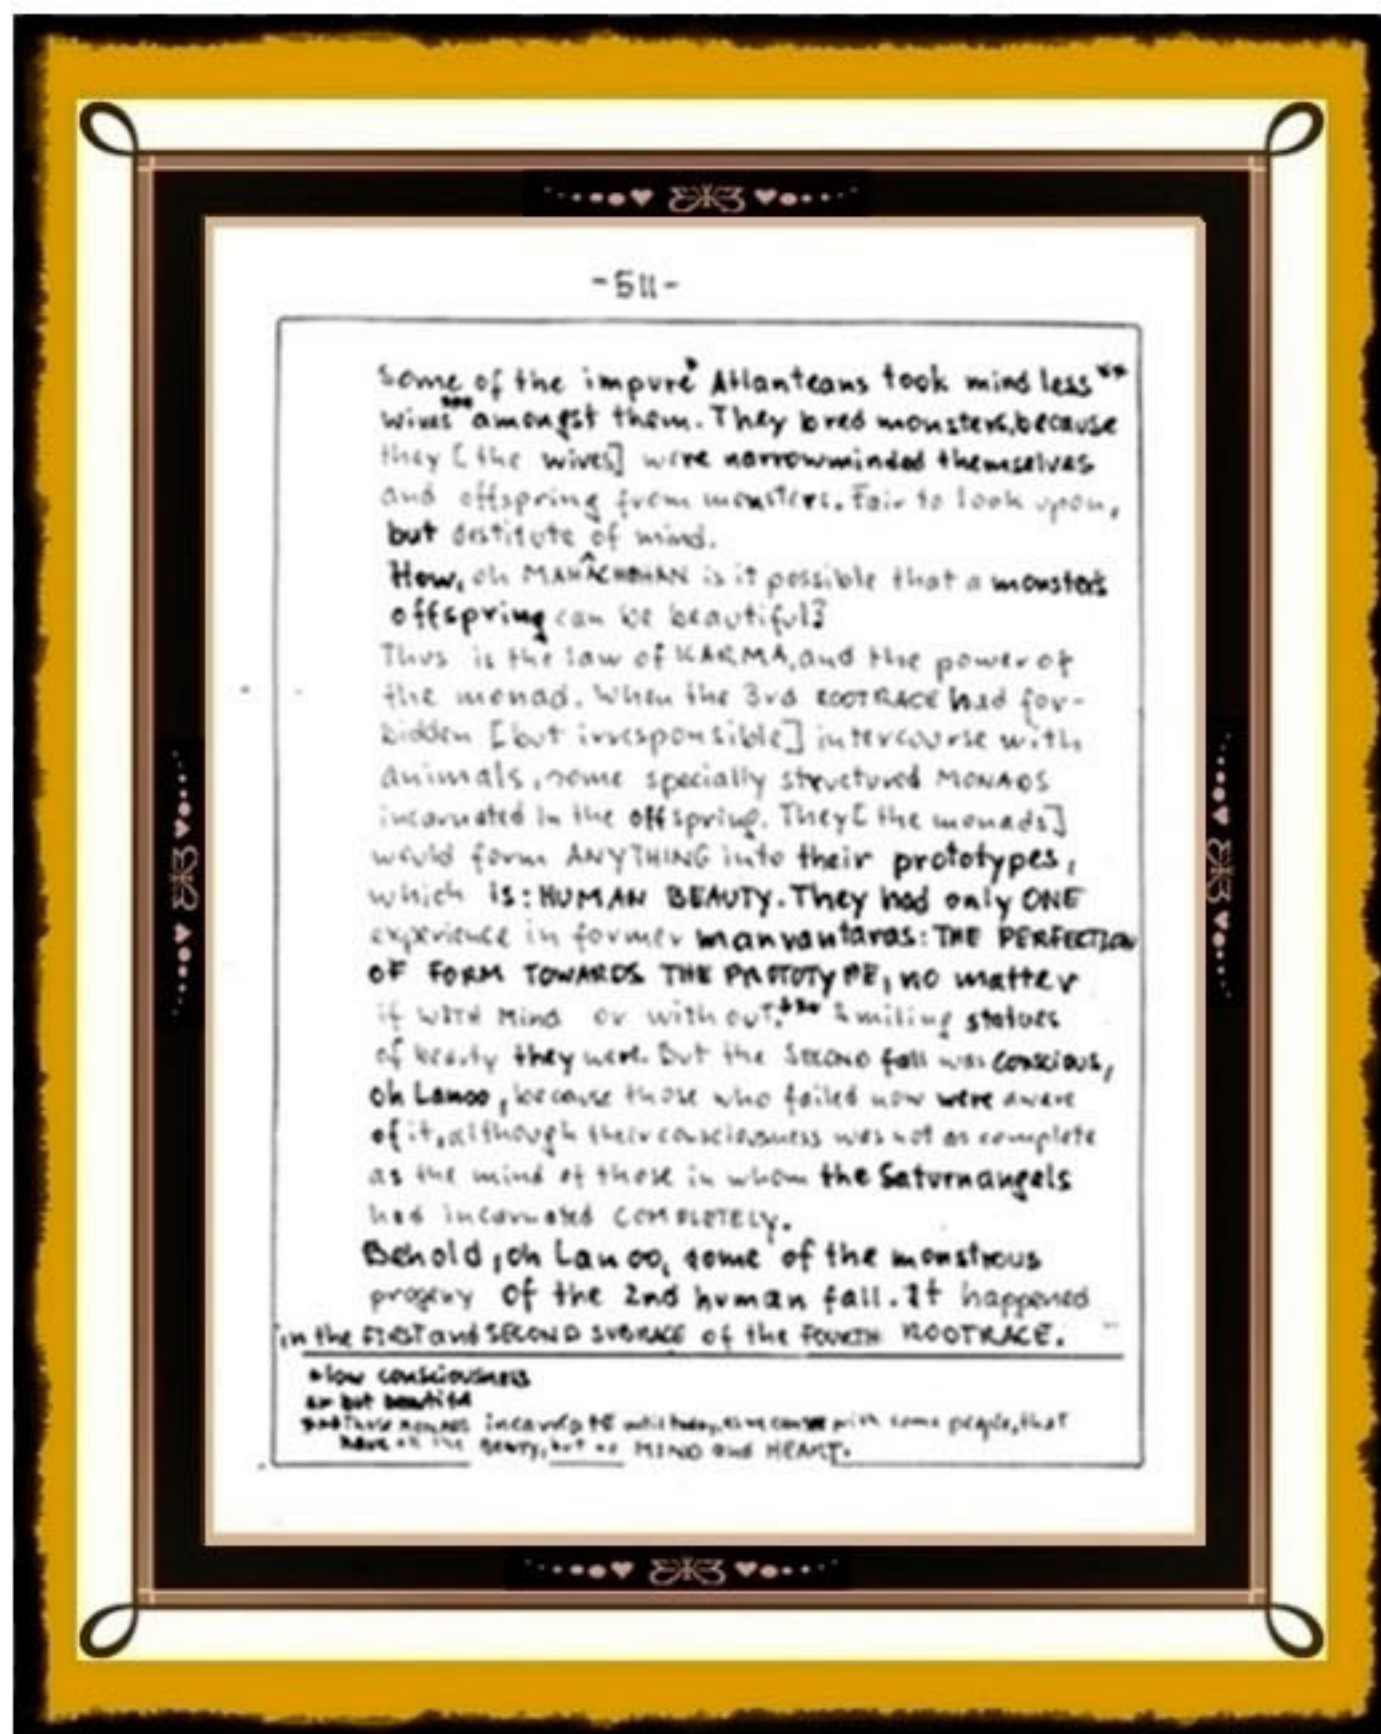 -511-
Some of the impure* Atlanteans took mindless**
wives*** amongst them. They bred monsters, because
they [the wives] were narrowminded themselves
and offspring from monsters. Fair to look upon,
but destitute of mind.
How, oh MAHÂCHOHAN is it possible that a monster's
offspring can be beautiful?
Thus is the law of KARMA, and the power of
the monad. When the 3rd ROOTRACE had for-
bidden [but irresponsible] intercourse with
animals, some specially structured MONADS
incarnated in the offspring. They [the monads]
would form ANYTHING into their prototypes,
which is: HUMAN BEAUTY. They had only ONE
experience in former manvantaras: THE PERFECTION
OF FORM TOWARDS THE PROTOTYPE, no matter
if WITH Mind or without.*** Smiling statues
of beauty they were. But the SECOND fall was conscious,
oh Lanoo, because those who failed now were aware
of it, although their consciousness was not as complete
as the mind of those in whom the Saturnangels
had incarnated COMPLETELY.
Behold, oh Lanoo, some of the monstrous
progeny of the 2nd human fall. It happened
in the FIRST and SECOND SUBRACE of the FOURTH ROOTRACE.
*low consciousness
** but beautiful
*** Those MONADS incarnate until today, as we can see with some people, that
have all the Beauty, but no MIND and HEART.